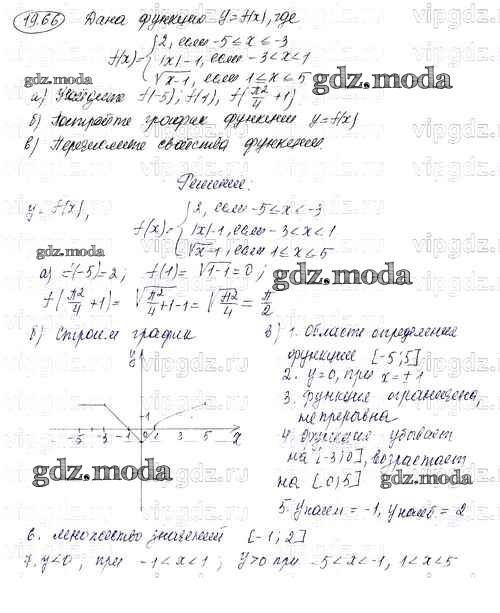 19.66 Дана функцию y=f(x), где
f(x)= { 2, если -5≤x≤-3
|x|-1, если -3<x<1
√x-1, если 1≤x≤5
gdz.moda
gdz.moda
а) f(-5); f(1), f(π²/4+1)
б) Постройте график функции y=f(x)
в) Перечислите свойства функции.
Решение:
y=f(x),
f(x)= { 2, если -5≤x≤-3
|x|-1, если -3<x<1
√x-1, если 1≤x≤5
gdz.moda
а) f(-5)=2; f(1)=√1-1=0;
gdz.moda
f(π²/4+1)=√π²/4+1-1=√π²/4=π/2
б) Строим график
в) 1. Области определения
функции [-5;5]
2. y=0, при x=±1
3. Функция ограничена,
непрерывна
4. Функция убывает
на [-3;0], возрастает
на [0;5]
5. yнаим=-1, yнаиб=2
y
1
-5 -3 -1 0 1 3 5 x
gdz.moda
gdz.moda
6. множество значений [-1;2]
7. y<0, при -1<x<1; y>0 при -5<x<-1, 1<x<5